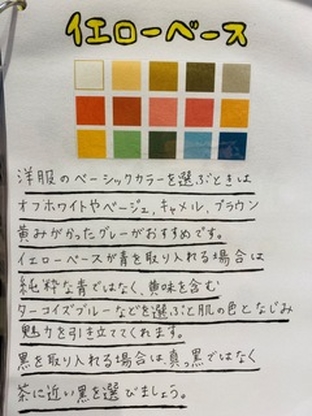 イエローベース
洋服のベーシックカラーを選ぶときは
オフホワイトやベージュ,キャメル、ブラウン
黄みがかったグレーがおすすめです。
イエローベースが青を取り入れる場合は
純粋な青ではなく、黄味を含む
ターコイズブルーなどを選ぶと肌の色となじみ
魅力を引き立ててくれます。
黒を取り入れる場合は、真っ黒ではなく
茶に近い黒を選びましょう。